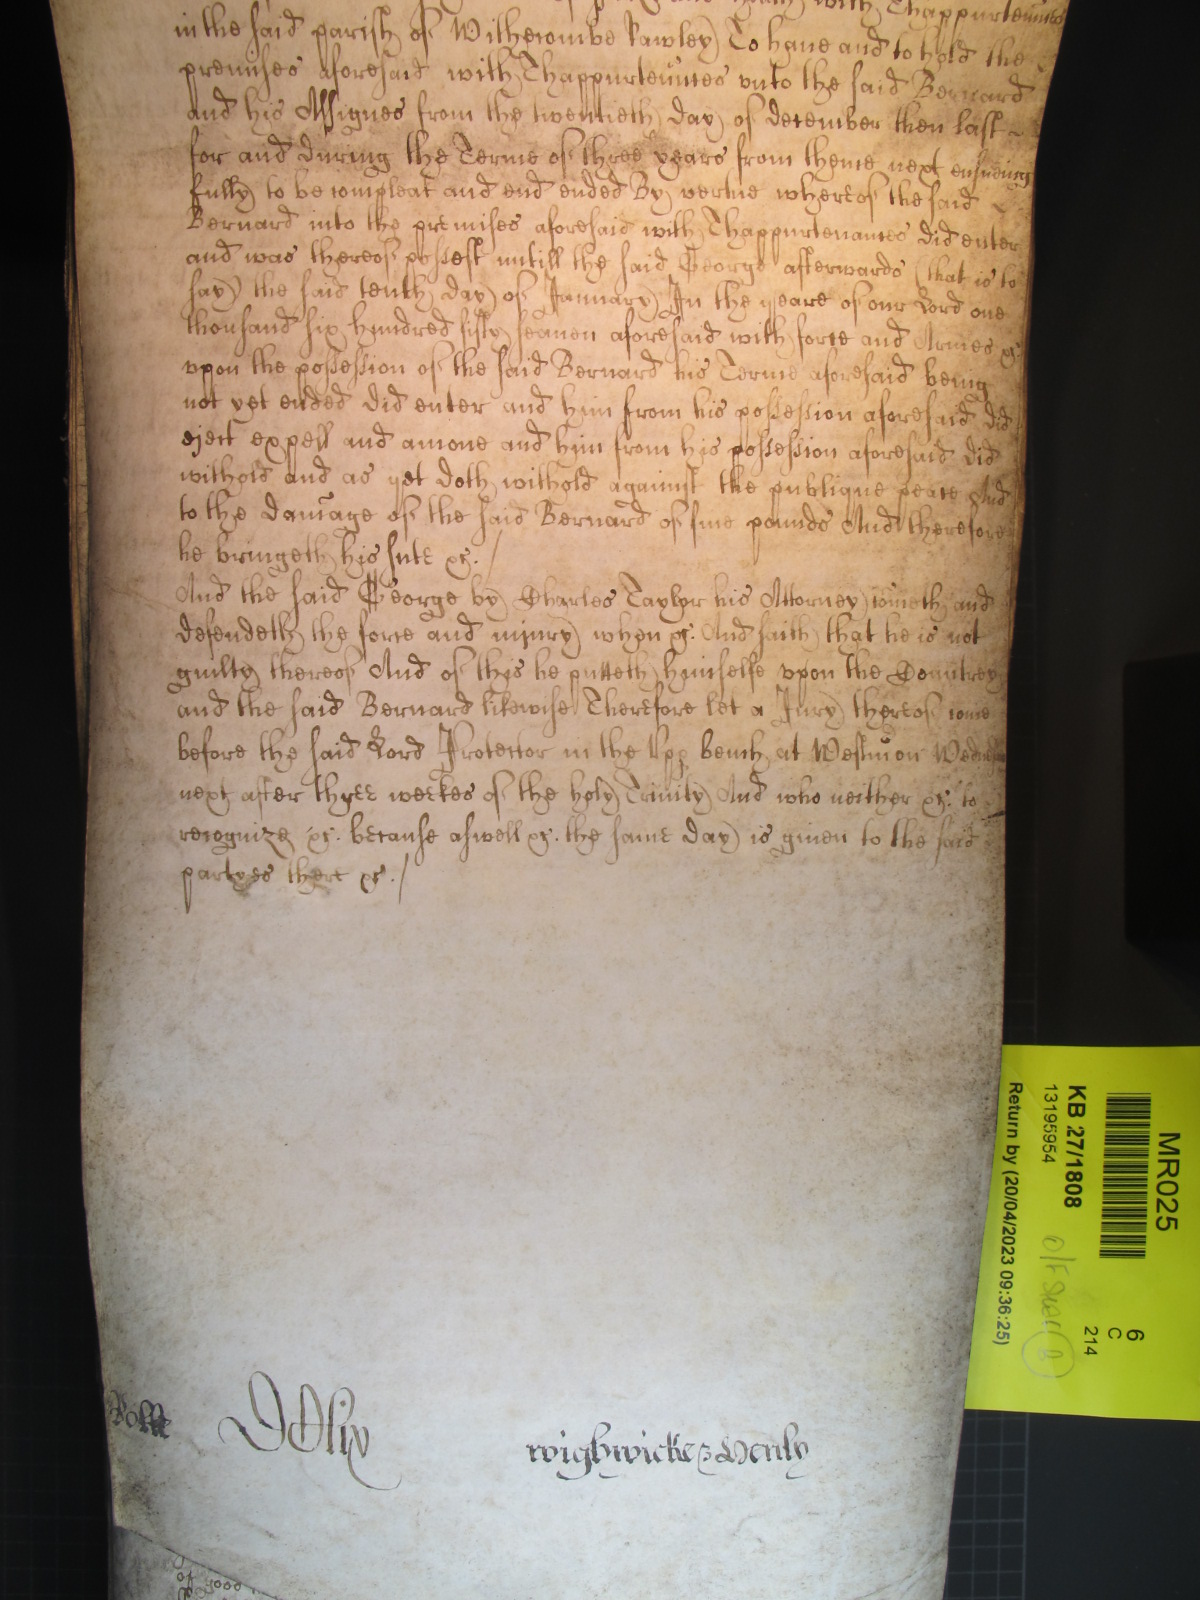 with Thappurtennces
in the said parish of Withecombe Rawley To haue and to hold the
premises aforesaid with Thappurtennces vnto the said Bernard
and his Assignes from the twentieth day of december then last
for and during the Terme of three yeares from thence next ensueing
fully to be compleat and end ended By vertue whereof the said
Bernard into the premises aforesaid with Thappurtenances did enter
and was thereof possest untill the said George afterwards (that is to
say) the said tenth day of January In the yeare of our Lord one
thousand six hundred fifty seauen aforesaid with force and Armes &c.
vpon the possession of the said Bernard his Terme aforesaid being
not yet ended did enter and him from his possession aforesaid did
eject expell and amoue and him from his possession aforesaid did
withold and as yet doth withold against the publique peace And
to the damage of the said Bernard of fiue pounds And therefore
he bringeth his sute &c. /
And the said George by Charles Taylor his Attorney cometh and
defendeth the force and injury when &c. And saith that he is not
guilty thereof And of this he putteth himselfe vpon the Countrey
and the said Bernard likewise Therefore let a Jury thereof come
before the said Lord Protector in the Upp bench at Westm on
next after three weekes of the holy Trinity And who neither &c. to
recognize &c. because aswell &c. the same day is giuen to the said
partyes there &c. /
Rolle
wighwicke & Henly
of 3000
MR025
KB 27/1808
13195954
6
C
214
Return by (20/04/2023 09:36:25)